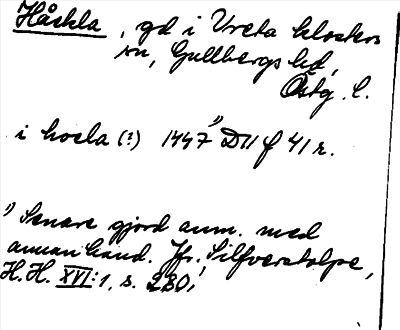 Håckla, gd i Vreta klosters
sn, Gullbergs hd,
Östg. l.
i hocla (?) 1447¹⁾ D11 f 41 r.
¹⁾ Senare gjord anm. med
annan hand. Jfr. Silfverstolpe,
H.H. XVI:1, s. 280,